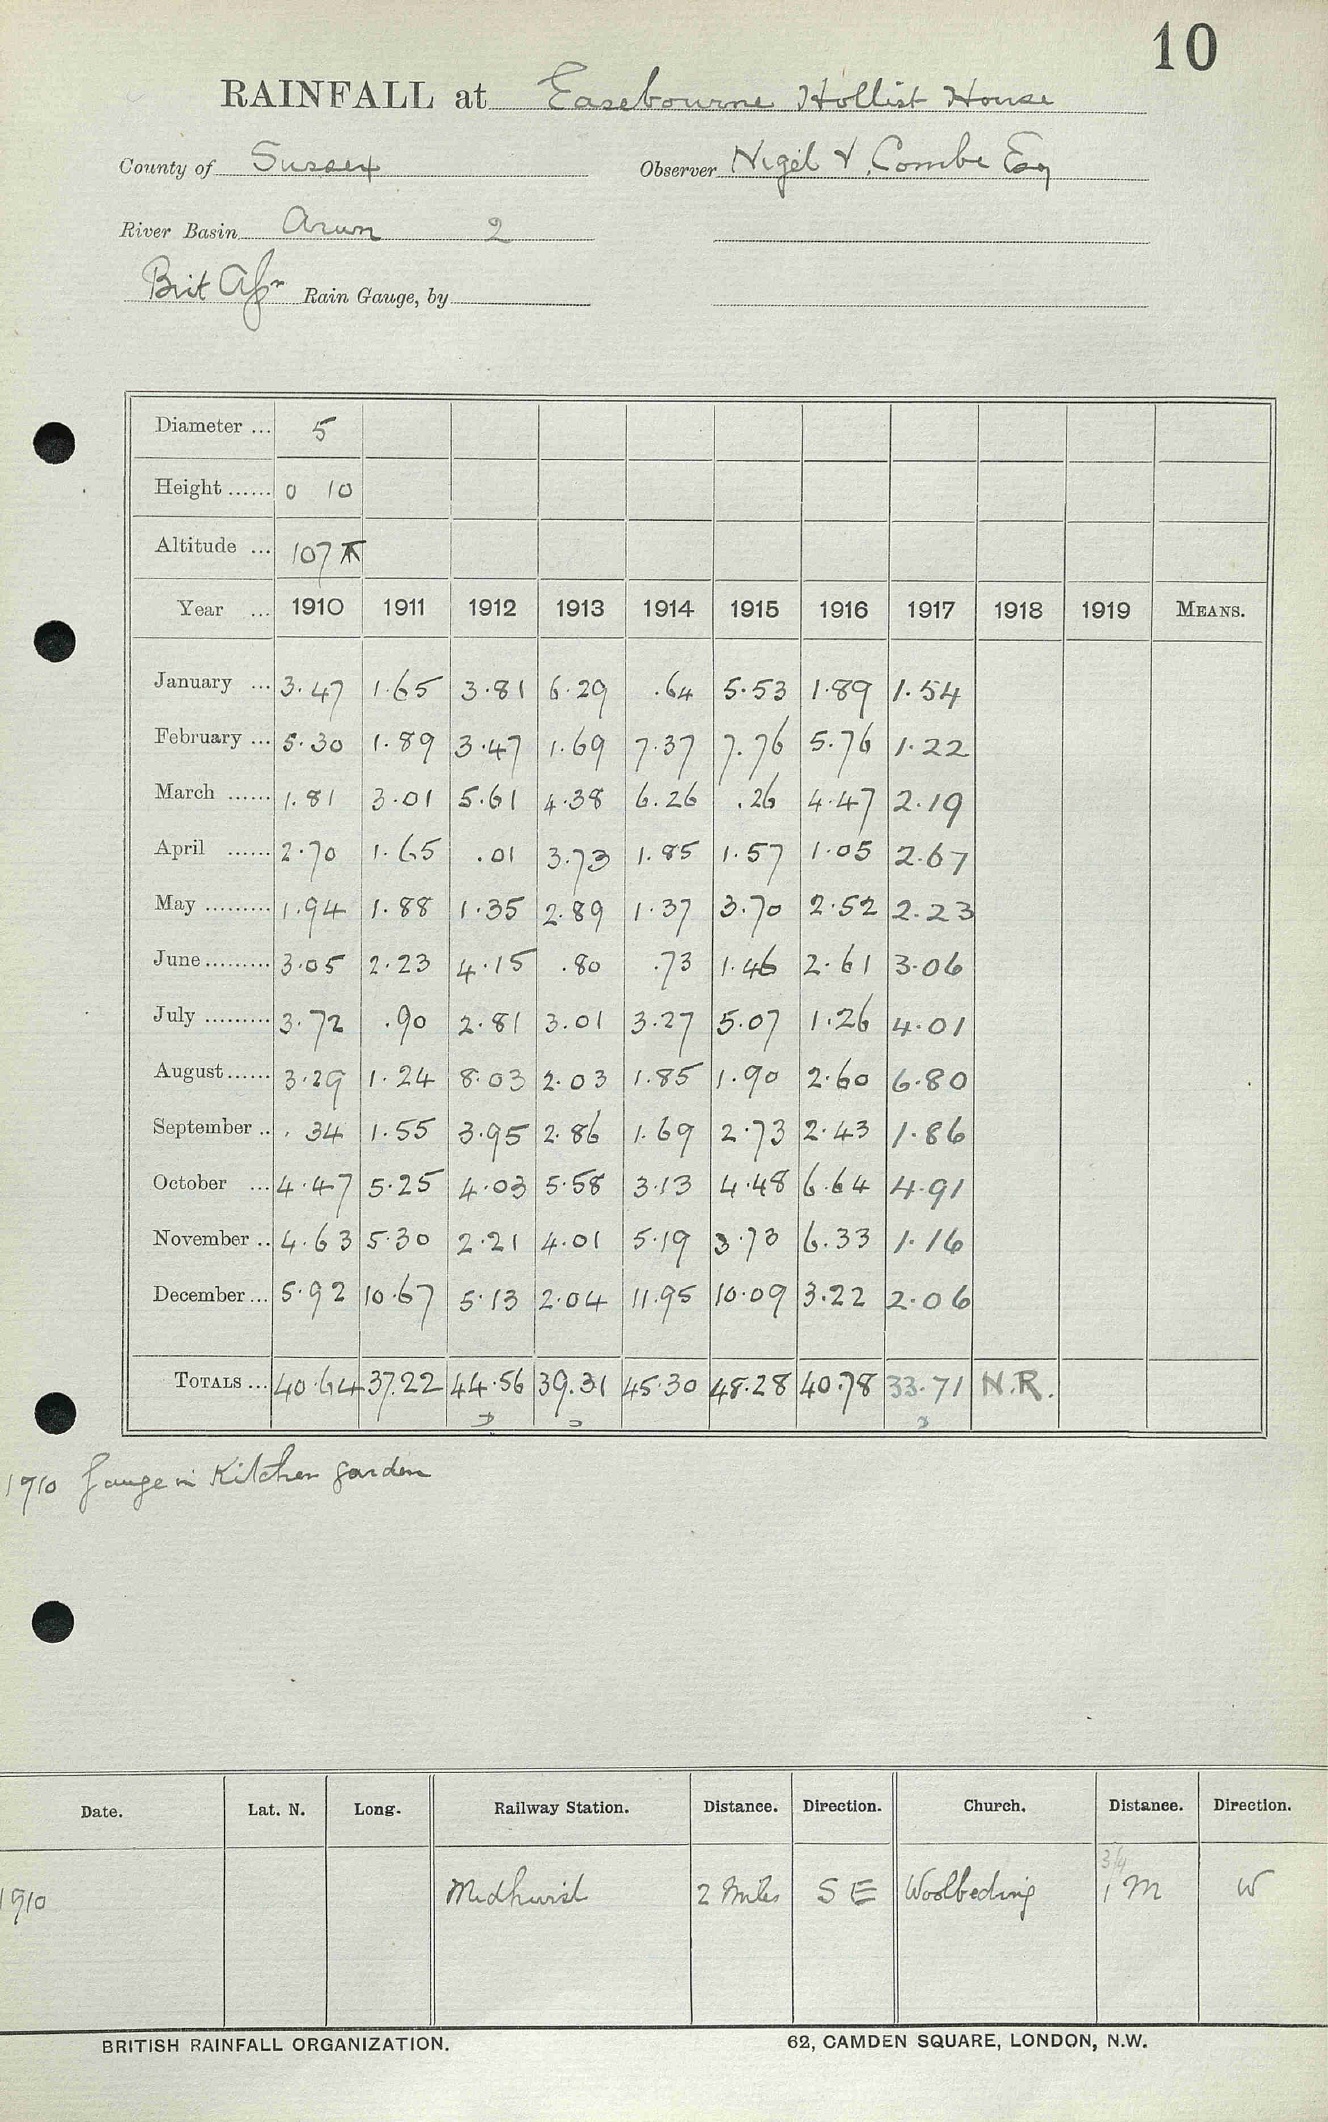 10
RAINFALL at Easebourne Hollist House
County of Sussex Observer Nigel V. Combe Esq
River Basin Arun 2
Brit Assn Rain Gauge, by
Diameter ... 5
Height ...... 0 10
Altitude ... 107
Year ... 1910 1911 1912 1913 1914 1915 1916 1917 1918 1919 MEANS.
January ... 3.47 1.65 3.81 6.29 .64 5.53 1.89 1.54
February ... 5.30 1.89 3.47 1.69 7.37 7.76 5.76 1.22
March ...... 1.81 3.01 5.61 4.38 6.26 .26 4.47 2.19
April ...... 2.70 1.65 .01 3.73 1.85 1.57 1.05 2.67
May ......... 1.94 1.88 1.35 2.89 1.37 3.70 2.52 2.23
June ......... 3.05 2.23 4.15 .80 .73 1.46 2.61 3.06
July ......... 3.72 .90 2.81 3.01 3.27 5.07 1.26 4.01
August ...... 3.29 1.24 8.03 2.03 1.85 1.90 2.60 6.80
September .. .34 1.55 3.95 2.86 1.69 2.73 2.43 1.86
October ... 4.47 5.25 4.03 5.58 3.13 4.48 6.64 4.91
November .. 4.63 5.30 2.21 4.01 5.19 3.73 6.33 1.16
December ... 5.92 10.67 5.13 2.04 11.95 10.09 3.22 2.06
TOTALS ... 40.64 37.22 44.56 39.31 45.30 48.28 40.78 33.71 N.R.
1910 Gauge in Kitchen garden
Date. Lat. N. Long. Railway Station. Distance. Direction. Church. Distance. Direction.
3/4
1910 Midhurst 2 Miles S E Woolbeding 1 M W
BRITISH RAINFALL ORGANIZATION. 62, CAMDEN SQUARE, LONDON, N.W.